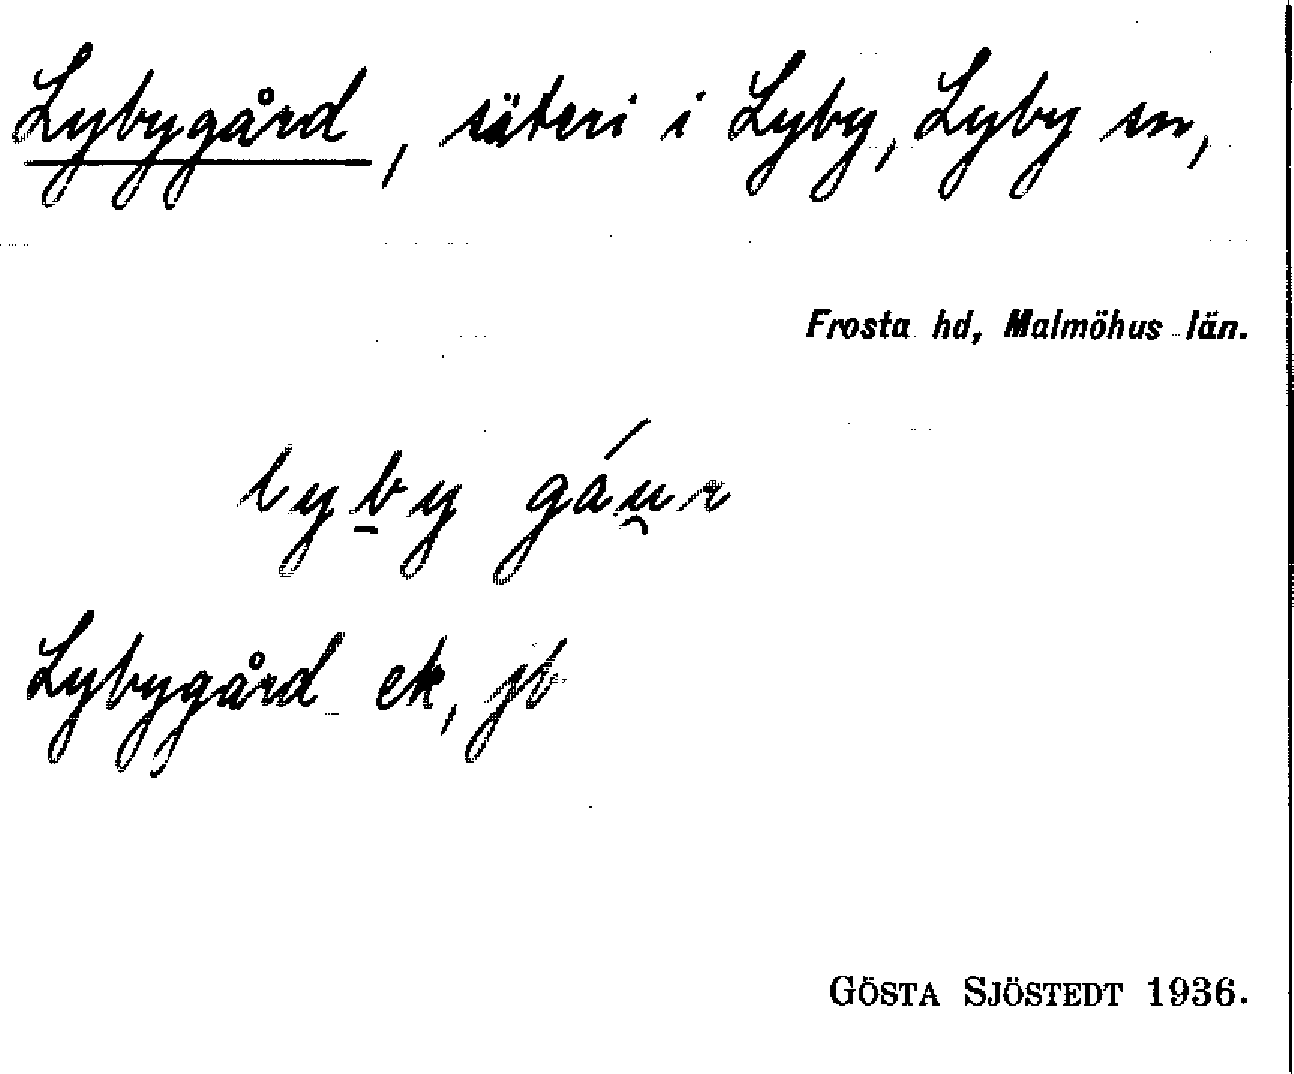 Lybygård, säteri i Lyby, Lyby sn,
Frosta hd, Malmöhus län.
lyb̲y gáu̯r
Lybygård ek, jb
GÖSTA SJÖSTEDT 1936.